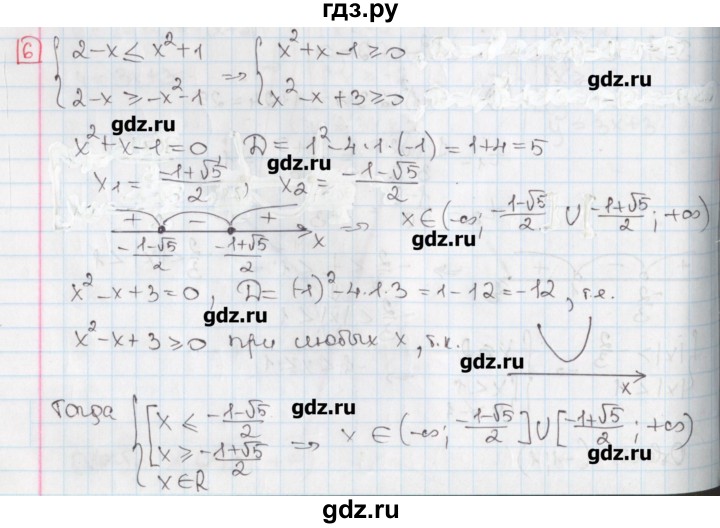 гдз.ру
6 { 2-x ≤ x²+1 ⇒ { x²+x-1 ≥ 0
2-x ≥ -x²-1 x²-x+3 ≥ 0
gdz.ru
gdz.ru
x²+x-1=0 D = 1²-4·1·(-1) = 1+4 = 5
gdz.ru
x₁ = (-1+√5)/2 ; x₂ = (-1-√5)/2
+ - + x ⇒ x∈(-∞; (-1-√5)/2] ∪ [(-1+√5)/2; +∞)
gdz.ru
(-1-√5)/2 (-1+√5)/2
x²-x+3=0, D = (-1)²-4·1·3 = 1-12 = -12, т.е.
gdz.ru
x²-x+3 ≥ 0 при любых x, т.к.
gdz.ru
x
Тогда { [ x ≤ (-1-√5)/2
gdz.ru
x ≥ (-1+√5)/2 ⇒ x ∈ (-∞; (-1-√5)/2] ∪ [(-1+√5)/2; +∞)
x∈R
gdz.ru
gdz.ru